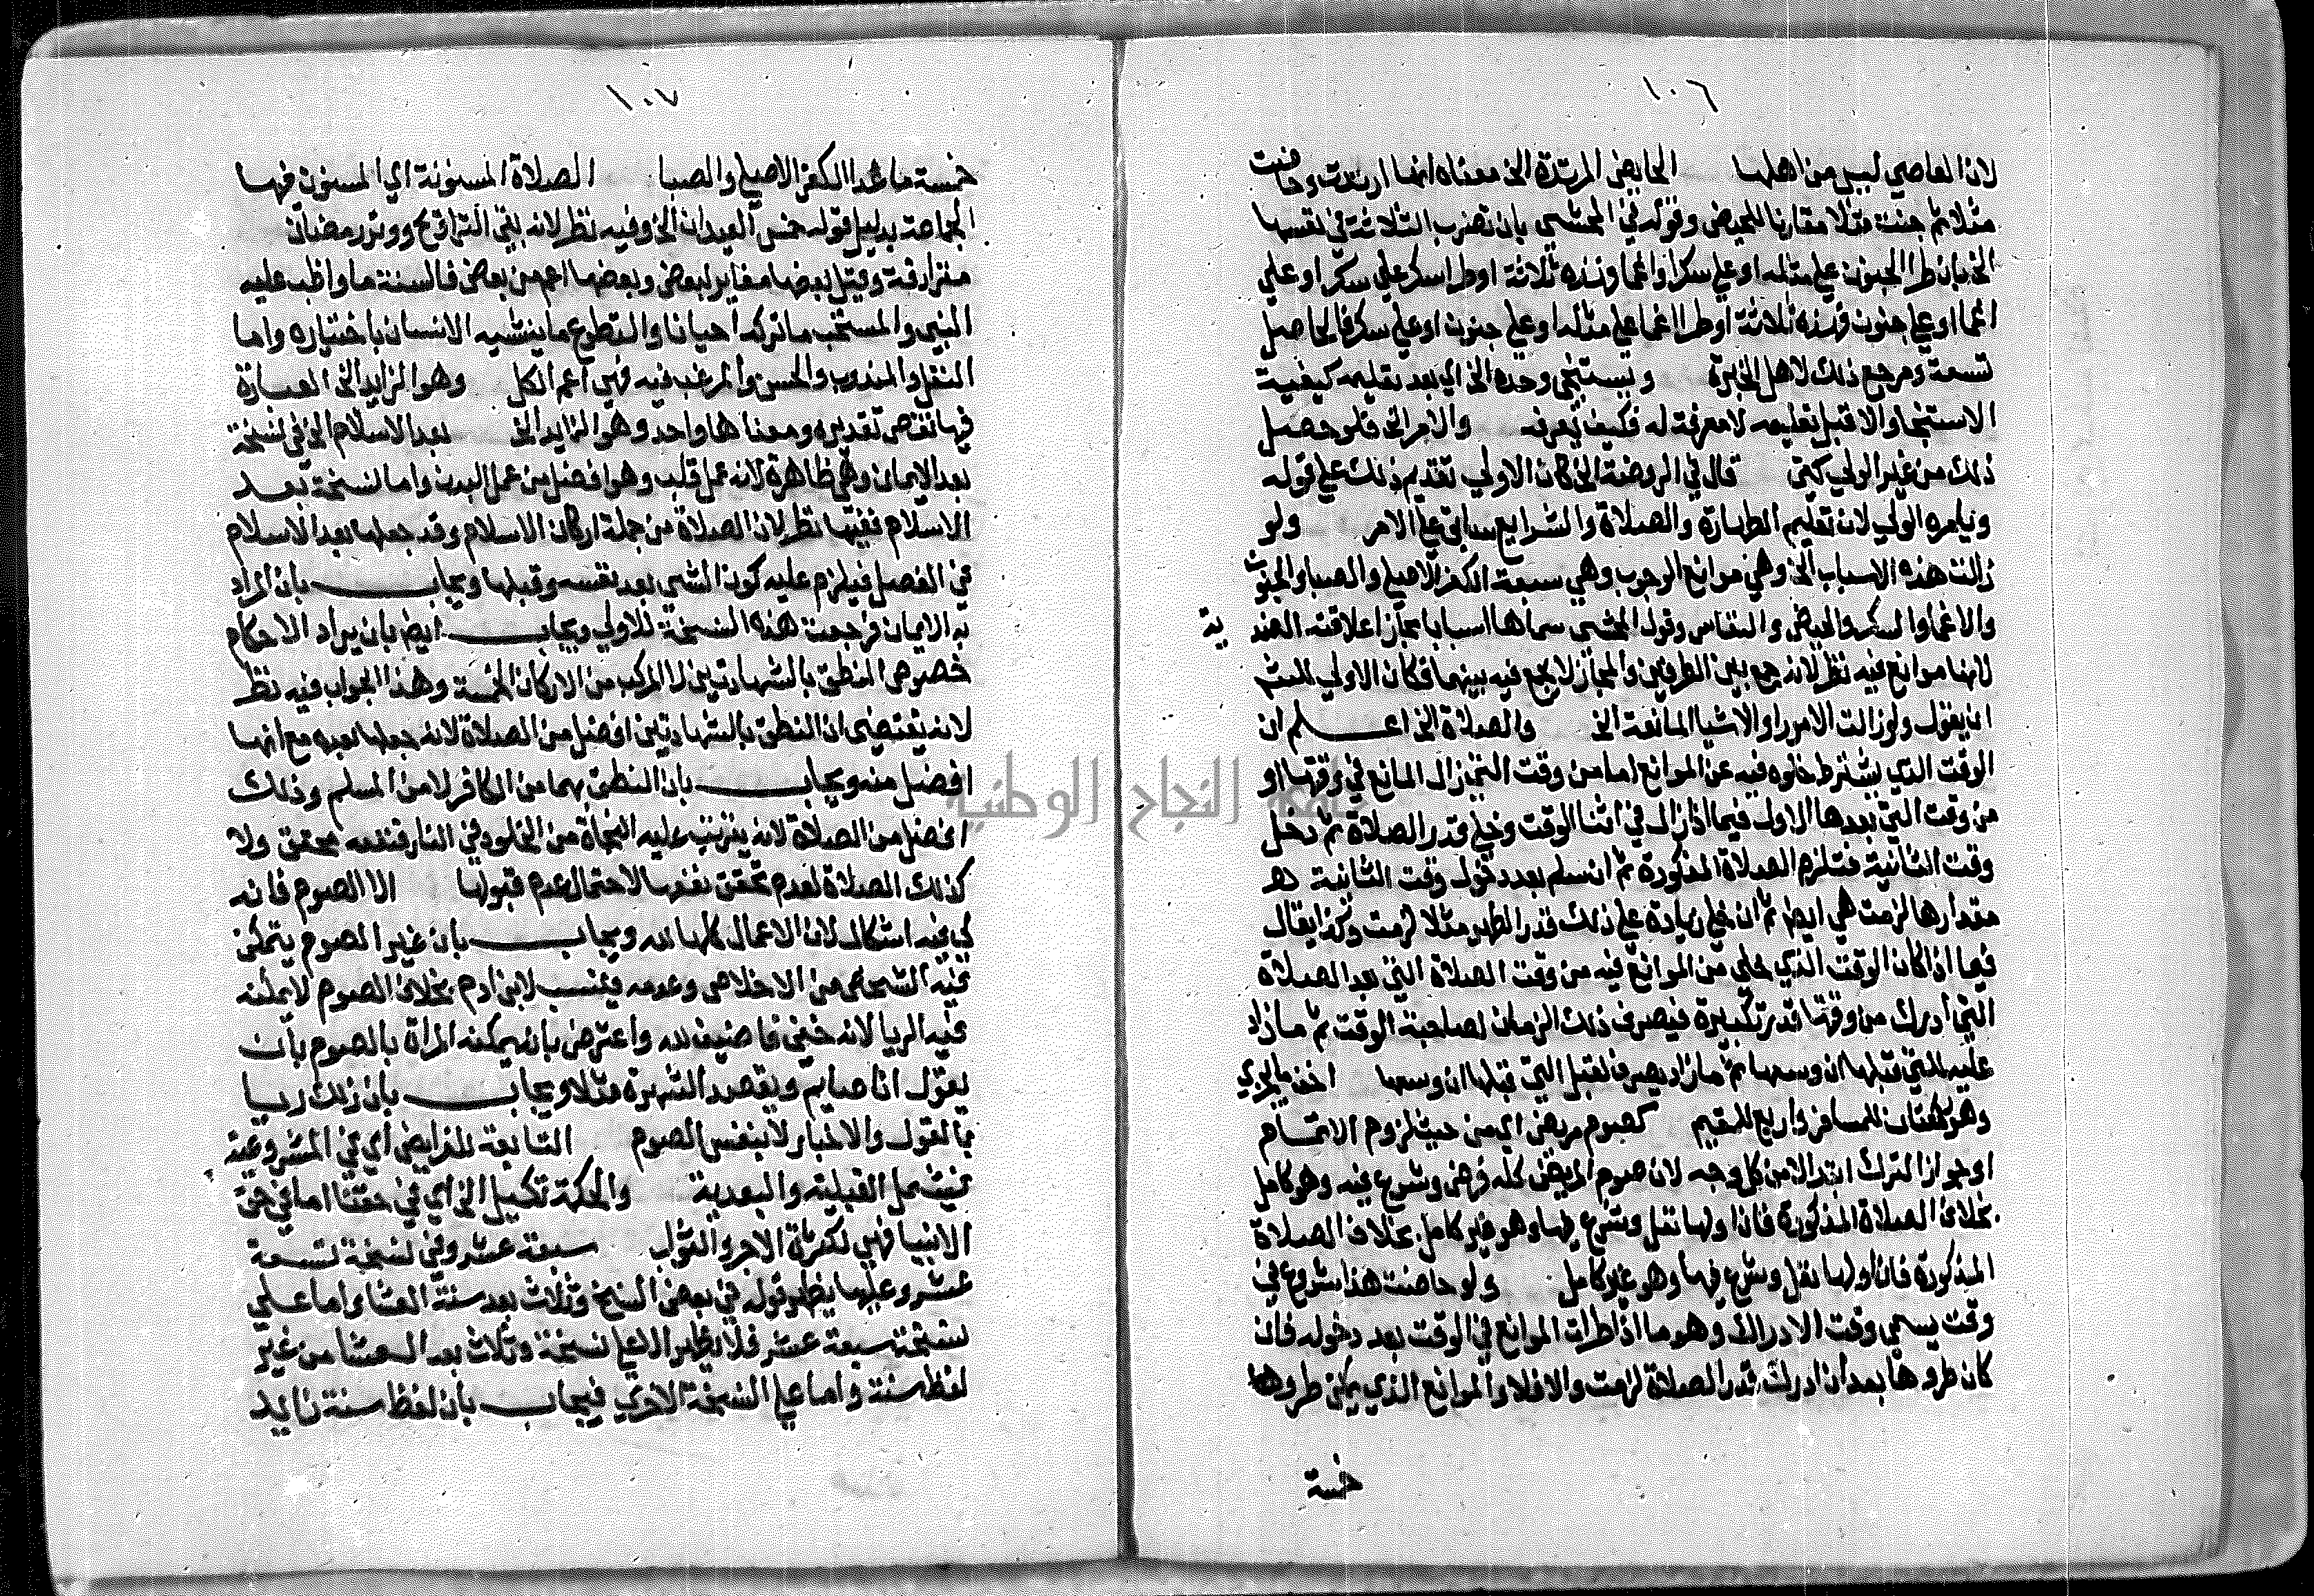 ١٠٦
لان العاصي ليس من اهلها الحايض المرتدة الخ معناه انها ارتدت وحاضت
مثلا ثم جنت مثلا مقارنا للحيض وقوله في المحشي بان تضرب الثلاثة في نفسها
الخ بان طرا الجنون على مثله او على سكر او اغما وهذه ثلاثة او طرا سكر على سكر او على
اغما او على جنون وهذه ثلاثة او طرا اغما على مثله او على جنون او على سكر فالحاصل
تسعة ومرجع ذلك لاهل الخبرة ويستنجي وحده الخ اي بعد تعليمه كيفية
الاستنجا والا قبل تعليمه لا معرفة له فكيف يعرفه والامر الخ فلو حصل
ذلك من غير الولي كفى قال في الروضة الخ كان الاولى تقديم ذلك على قوله
ويامره الولي لان تعليم الطهارة والصلاة والشرايع سابق على الامر ولو
زالت هذه الاسباب الخ وهي موانع الوجوب وهي سبعة الكفر الاصلي والصبا والجنون
والاغما والسكر والحيض والنفاس وقول المحشي سماها اسبابا مجازا علاقته الضد ية
لانها موانع فيه نظر لانه جمع بين الطرفين والمجاز لا يجمع فيه بينهما فكان الاولى للشم
ان يقول ولو زالت الامور او الاشيا المانعة الخ والصلاة الخ اعلم ان
الوقت الذي يشترط خلوه فيه عن الموانع اما من وقت التي زال المانع في وقتها او
من وقت التي بعدها الاول فيما اذا زال في اثنا الوقت وخلي قدر الصلاة ثم دخل
وقت الثانية فتلزم الصلاة المذكورة ثم ان سلم بعد دخول وقت الثانية
مقدارها لزمت هي ايض ثم ان خلي زيادة على ذلك قدر الظهر مثلا لزمت وكذا يقال
فيما اذا كان الوقت الذي خلي من الموانع فيه من وقت الصلاة التي بعد الصلاة
التي ادرك من وقتها قدر تكبيرة فيصرف ذلك الزمان لصاحبة الوقت ثم ما زاد
عليه للتي قبلها ان وسعها ثم ما زاد يصرف لقبل التي قبلها ان وسعها اخف ما يجزي
وهو ركعتان للمسافر واربع للمقيم كصوم مريض اي من حيث لزوم الاتمام
او جواز الترك ابتدا لا من كل وجه لان صوم المريض كله فرض وشرع فيه وهو كامل
بخلاف الصلاة المذكورة فان اولها نفل وشرع فيها وهو غير كامل بخلاف الصلاة
المذكورة فان اولها نفل وشرع فيها وهو غير كامل ولو حاضت هذا شروع في
وقت يسمى وقت الادراك وهو ما اذا طرات الموانع في الوقت بعد دخوله فان
كان طروها بعد ان ادرك قدر الصلاة لزمت والا فلا والموانع الذي يمكن طروها
خمسة
١٠٧
خمسة ما عدا الكفر الاصلي والصبا الصلاة المسنونة اي المسنون فيها
الجماعة بدليل قوله خمس العيدان الخ وفيه نظر لانه بقي التراويح ووتر رمضان
مترادفة وقيل بعضها مغاير لبعض وبعضها اعم من بعض فالسنة ما واظب عليه
النبي والمستحب ما تركه احيانا والتطوع ما ينشيه الانسان باختياره واما
النفل والمندوب والحسن والمرغب فيه فهي اعم الكل وهو الزايد الخ العبارة
فيها نقص تقديره ومعناها واحد وهو الزايد الخ بعد الاسلام الخ في نسخة
بعد الايمان وهي ظاهرة لانه عمل قلب وهو افضل من عمل البدن واما نسخة بعد
الاسلام ففيها نظر لان الصلاة من جملة اركان الاسلام وقد جعلها بعد الاسلام
في الفضل فيلزم عليه كون الشي بعد نفسه وقبلها ويجاب بان المراد
به الايمان فرجعت هذه النسخة للاولى ويجاب ايض بان يراد الاحكام
خصوص النطق بالشهادتين لا المركب من الاركان الخمسة وهذا الجواب فيه نظر
لانه يقتضي ان النطق بالشهادتين افضل من الصلاة لانه جعلها بعده مع انها
افضل منه ويجاب بان النطق بهما من الكافر لا من المسلم وذلك
افضل من الصلاة لانه يترتب عليه النجاة من الخلود في النار فنفعه محقق ولا
كذلك الصلاة لعدم تحقق نفعها لاحتمال عدم قبولها الا الصوم فانه
لي فيه اشكال لان الاعمال كلها لله ويجاب بان غير الصوم يتمكن
فيه الشخص من الاخلاص وعدمه فينسب لابن ادم بخلاف الصوم لا يمكنه
فيه الريا لانه خفي فاضيف لله واعترض بانه يمكنه المراة بالصوم بان
يقول انا صايم ويقصد الشهرة مثلا ويجاب بان ذلك ريا
بالقول والاخبار لا بنفس الصوم التابعة للفرايض اي في المشروعية
فيشمل القبلية والبعدية والحكمة تكميل الخ اي في حقنا اما في حق
الانبيا فهي لكثرة الاجر والثواب سبعة عشر وفي نسخة تسعة
عشر وعليها يظهر قوله في بعض النسخ وثلاث بعد سنة العشا واما على
نسخة سبعة عشر فلا يظهر الا على نسخة وثلاث بعد العشا من غير
لفظ سنة واما على النسخة الاخرى فيجاب بان لفظ سنة زايد
جامعة النجاح الوطنية